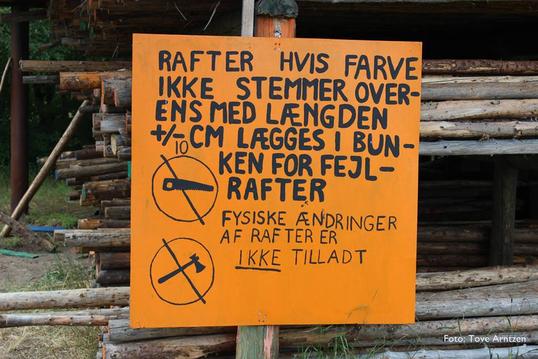 RAFTER HVIS FARVE
IKKE STEMMER OVER-
ENS MED LÆNGDEN
+/- 10 CM LÆGGES I BUN-
KEN FOR FEJL-
RAFTER
FYSISKE ÆNDRINGER
AF RAFTER ER
IKKE TILLADT
Foto: Tove Arntzen